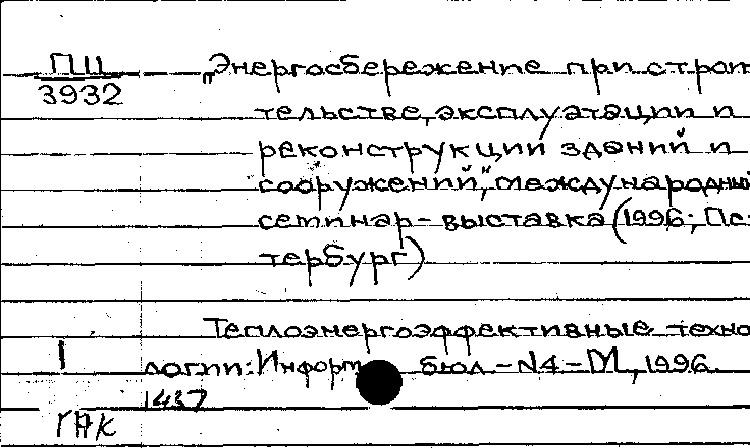 ПШ „Энергосбережение при строи
3932 тельстве, эксплуатации и
реконструкции зданий и
сооружений", международный
семинар-выставка (1996; Пе-
тербург)
Теплоэнергоэффективные техно
I логии: Информ. бюл. - N4 - М, 1996.
1437
ГПК